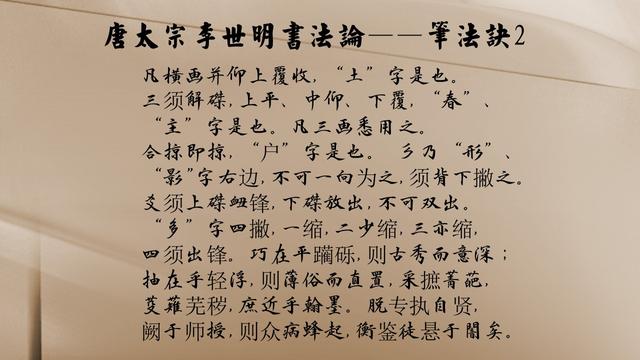 唐太宗李世明書法論——筆法訣2
凡橫画并仰上覆收，“土”字是也。
三须解磔，上平、中仰、下覆，“春”、
“主”字是也。凡三画悉用之。
合掠即掠，“户”字是也。彡乃“形”、
“影”字右边，不可一向为之，须背下撇之。
爻须上磔衄锋，下磔放出，不可双出。
“多”字四撇，一缩，二少缩，三亦缩，
四须出锋。巧在平躏砾，则古秀而意深；
抽在手轻浮，则薄俗而直置，采摭菁葩，
芟薙芜秽，庶近乎翰墨。脱专执自贤，
阙于师授，则众病蜂起，衡鉴徒悬于闇矣。